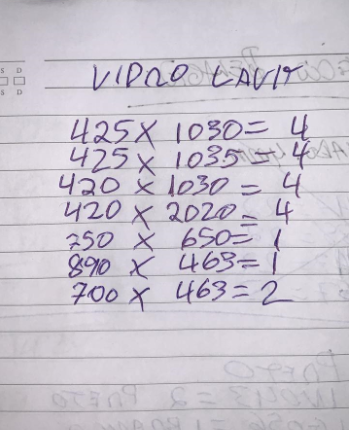 VIDRO LAVIT
425 X 1030 = 4
425 X 1035 = 4
420 X 1030 = 4
420 X 2020 = 4
750 X 650 = 1
890 X 463 = 1
700 X 463 = 2